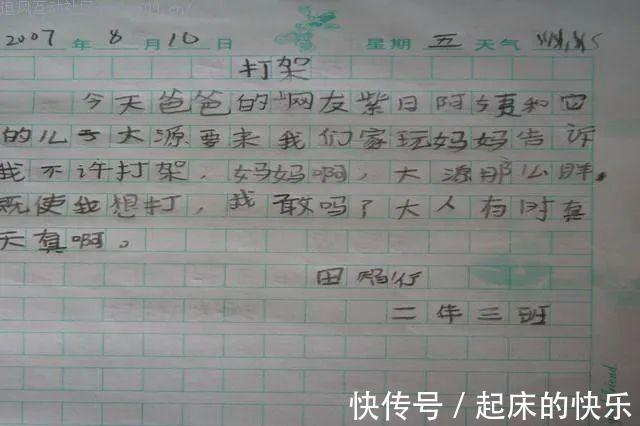 2007年8月10日 星期五 天气
打架
今天爸爸的网友紫日阿姨和它
的儿子大源要来我们家玩妈妈告诉
我不许打架,妈妈啊,大源那么胖,
既使我想打,我敢吗?大人有时真
天真啊。
田
二年三班
快传号/起床的快乐